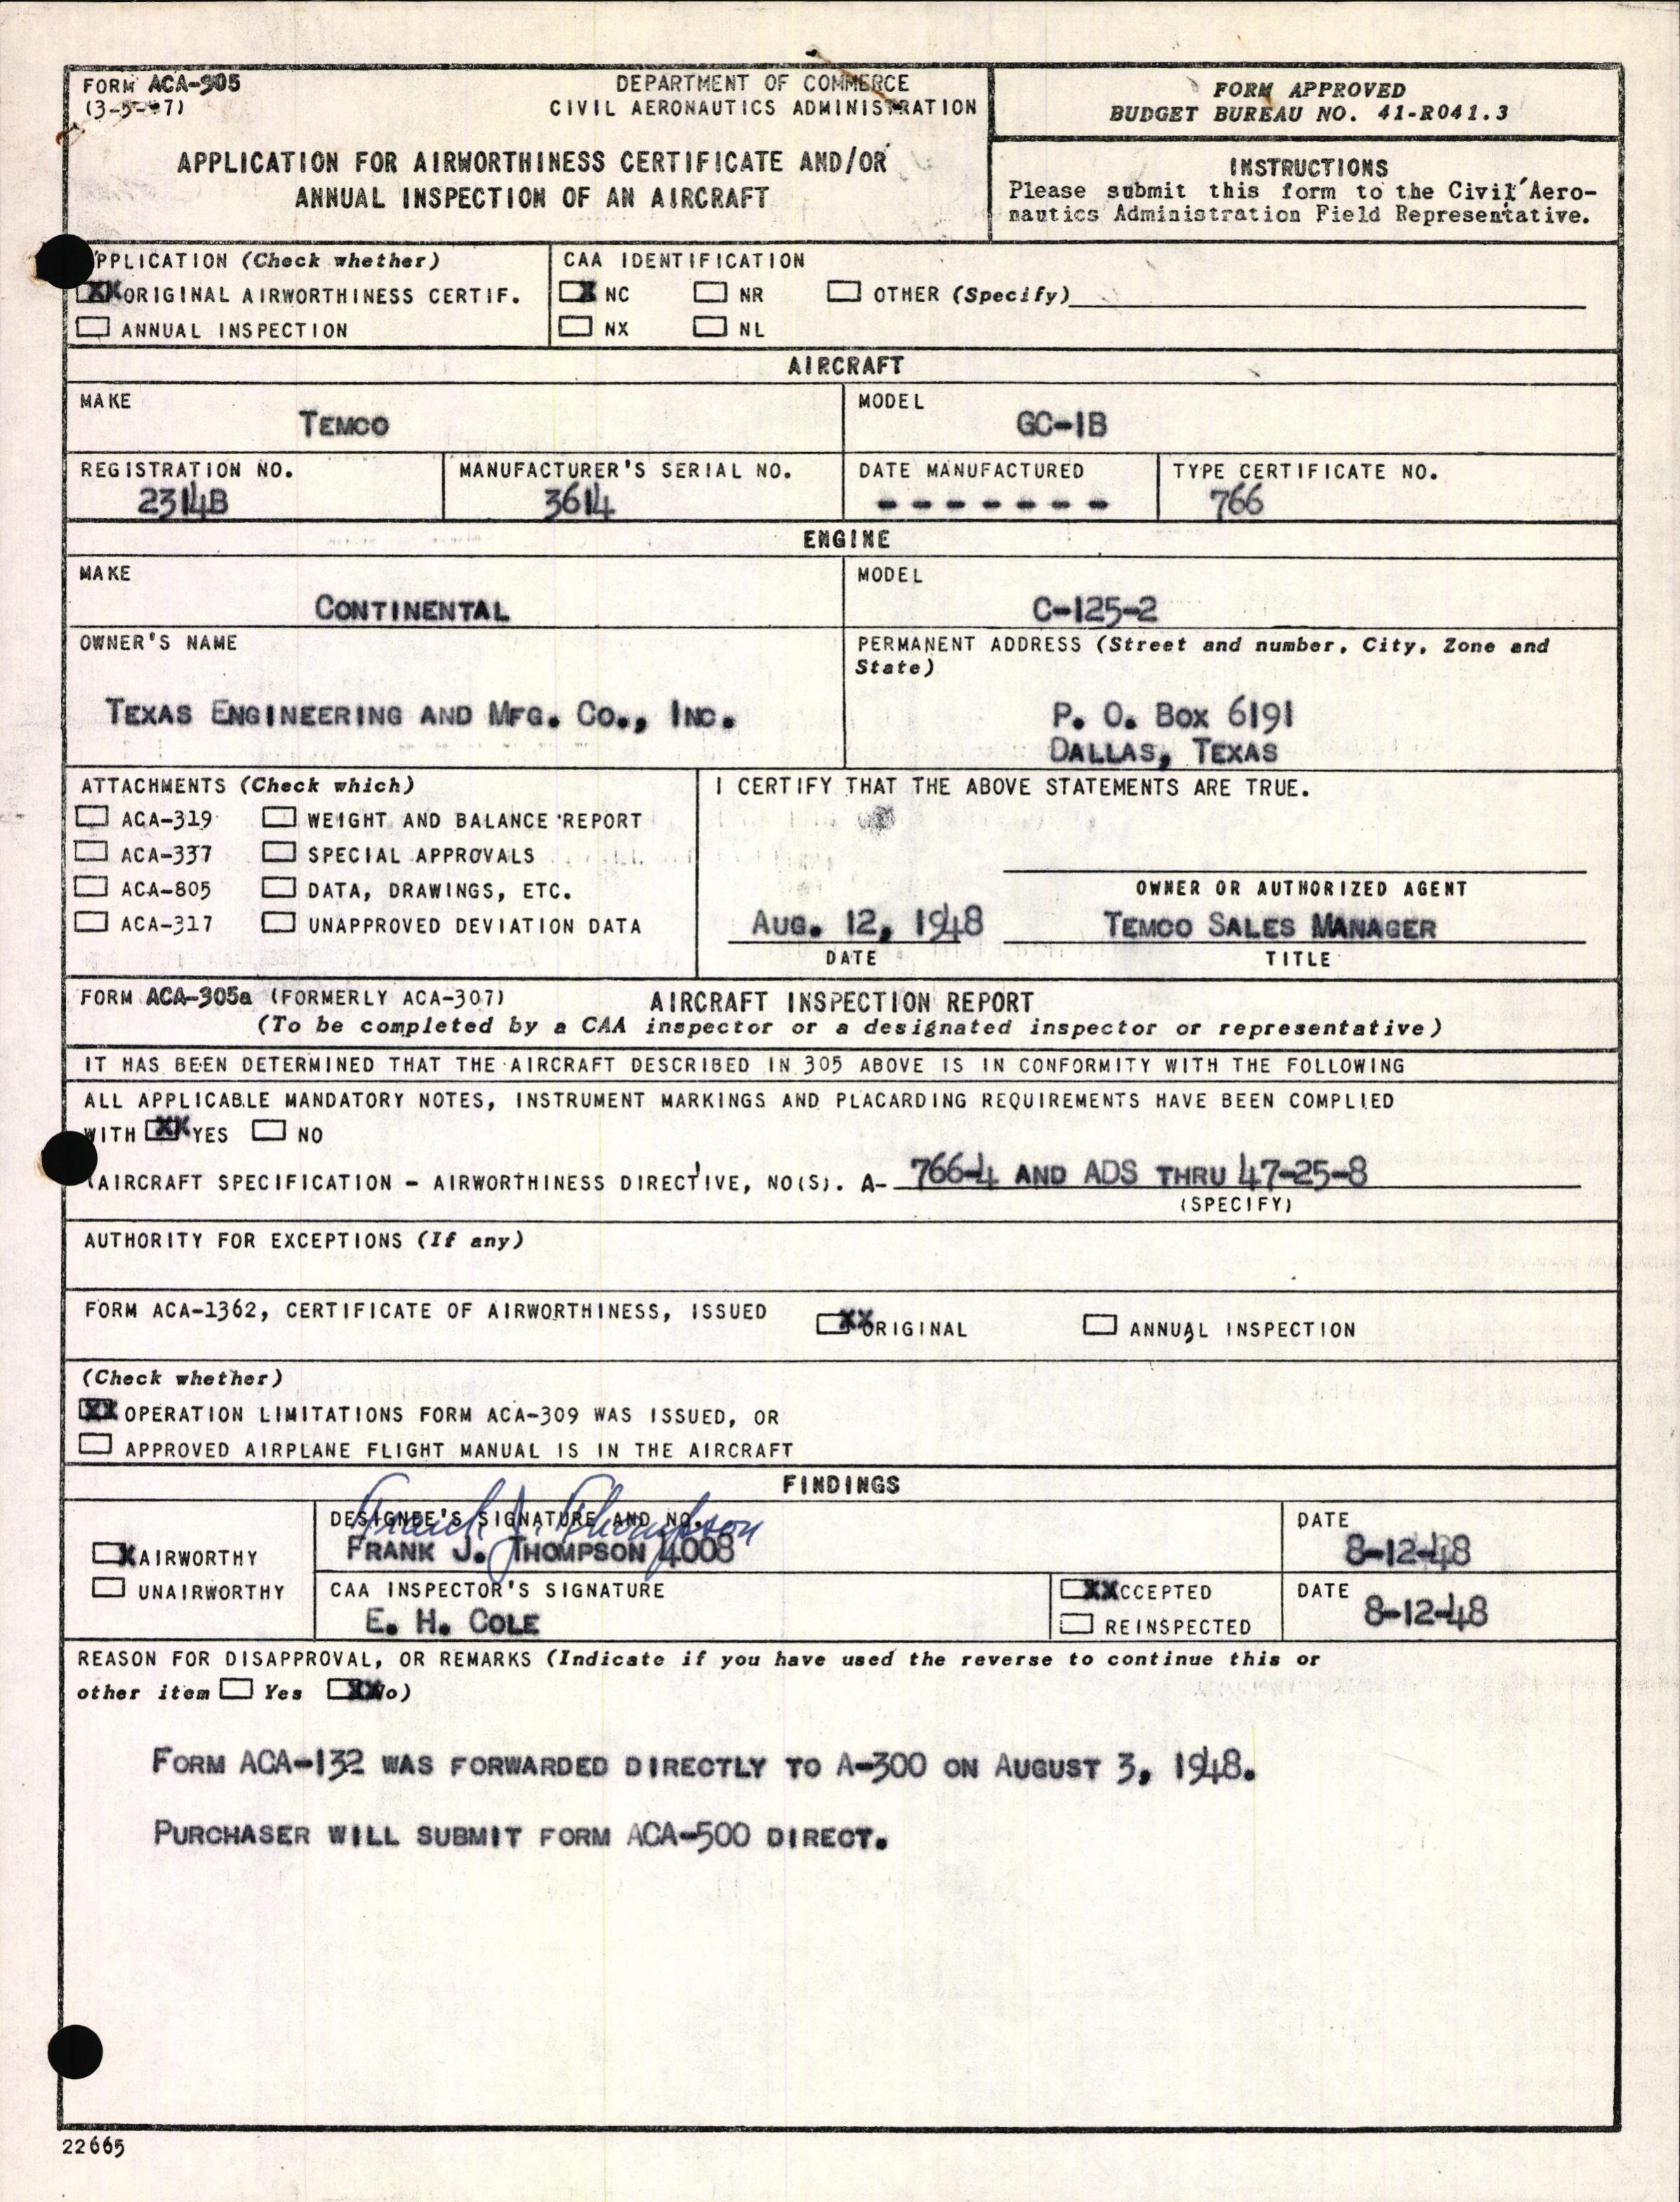 FORM ACA-305
DEPARTMENT OF COMMERCE
CIVIL AERONAUTICS ADMINISTRATION
APPLICATION FOR AIRWORTHINESS CERTIFICATE AND/OR
ANNUAL INSPECTION OF AN AIRCRAFT
FORM APPROVED
BUDGET BUREAU NO. 41-R041.3
INSTRUCTIONS
Please submit this form to the Civil Aero-
nautics Administration Field Representative.
PPLICATION (Check whether)
XX ORIGINAL AIRWORTHINESS CERTIF.
ANNUAL INSPECTION
CAA IDENTIFICATION
X NC NR OTHER (Specify)
NX NL
AIRCRAFT
MAKE
TEMCO
MODEL
GC-1B
REGISTRATION NO.
2314B
MANUFACTURER'S SERIAL NO.
3614
DATE MANUFACTURED
- - - - - - -
TYPE CERTIFICATE NO.
766
ENGINE
MAKE
CONTINENTAL
MODEL
C-125-2
OWNER'S NAME
TEXAS ENGINEERING AND MFG. CO., INC.
PERMANENT ADDRESS (Street and number, City, Zone and
State)
P. O. BOX 6191
DALLAS, TEXAS
ATTACHMENTS (Check which)
ACA-319 WEIGHT AND BALANCE REPORT
ACA-337 SPECIAL APPROVALS
ACA-805 DATA, DRAWINGS, ETC.
ACA-317 UNAPPROVED DEVIATION DATA
I CERTIFY THAT THE ABOVE STATEMENTS ARE TRUE.
OWNER OR AUTHORIZED AGENT
AUG. 12, 1948 TEMCO SALES MANAGER
DATE TITLE
FORM ACA-305a (FORMERLY ACA-307) AIRCRAFT INSPECTION REPORT
(To be completed by a CAA inspector or a designated inspector or representative)
IT HAS BEEN DETERMINED THAT THE AIRCRAFT DESCRIBED IN 305 ABOVE IS IN CONFORMITY WITH THE FOLLOWING
ALL APPLICABLE MANDATORY NOTES, INSTRUMENT MARKINGS AND PLACARDING REQUIREMENTS HAVE BEEN COMPLIED
WITH XX YES NO
(AIRCRAFT SPECIFICATION - AIRWORTHINESS DIRECTIVE, NO(S). A- 766-4 AND ADS THRU 47-25-8
(SPECIFY)
AUTHORITY FOR EXCEPTIONS (If any)
FORM ACA-1362, CERTIFICATE OF AIRWORTHINESS, ISSUED XX ORIGINAL ANNUAL INSPECTION
(Check whether)
XX OPERATION LIMITATIONS FORM ACA-309 WAS ISSUED, OR
APPROVED AIRPLANE FLIGHT MANUAL IS IN THE AIRCRAFT
FINDINGS
X AIRWORTHY
UNAIRWORTHY
DESIGNEE'S SIGNATURE AND NO.
Frank J. Thompson
FRANK J. THOMPSON 4008
DATE
8-12-48
CAA INSPECTOR'S SIGNATURE
E. H. COLE
XXCCEPTED
REINSPECTED
DATE
8-12-48
REASON FOR DISAPPROVAL, OR REMARKS (Indicate if you have used the reverse to continue this or
other item Yes XXo)
FORM ACA-132 WAS FORWARDED DIRECTLY TO A-300 ON AUGUST 3, 1948.
PURCHASER WILL SUBMIT FORM ACA-500 DIRECT.
22665